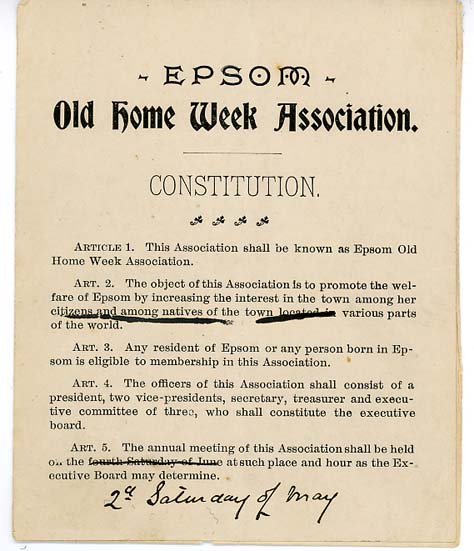 - EPSOM -
Old Home Week Association.
CONSTITUTION.
ARTICLE 1. This Association shall be known as Epsom Old
Home Week Association.
ART. 2. The object of this Association is to promote the wel-
fare of Epsom by increasing the interest in the town among her
citizens and among natives of the town located in various parts
of the world.
ART. 3. Any resident of Epsom or any person born in Ep-
som is eligible to membership in this Association.
ART. 4. The officers of this Association shall consist of a
president, two vice-presidents, secretary, treasurer and execu-
tive committee of three, who shall constitute the executive
board.
ART. 5. The annual meeting of this Association shall be held
on the fourth Saturday of June at such place and hour as the Ex-
ecutive Board may determine.
2d Saturday of May